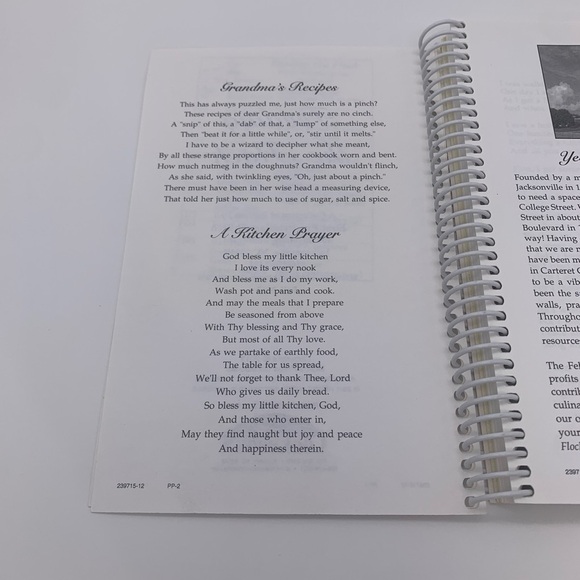 Grandma's Recipes
This has always puzzled me, just how much is a pinch?
These recipes of dear Grandma's surely are no cinch.
A "snip" of this, a "dab" of that, a "lump" of something else,
Then "beat it for a little while", or, "stir until it melts."
I have to be a wizard to decipher what she meant,
By all these strange proportions in her cookbook worn and bent.
How much nutmeg in the doughnuts? Grandma wouldn't flinch,
As she said, with twinkling eyes, "Oh, just about a pinch."
There must have been in her wise head a measuring device,
That told her just how much to use of sugar, salt and spice.
A Kitchen Prayer
God bless my little kitchen
I love its every nook
And bless me as I do my work,
Wash pot and pans and cook.
And may the meals that I prepare
Be seasoned from above
With Thy blessing and Thy grace,
But most of all Thy love.
As we partake of earthly food,
The table for us spread,
We'll not forget to thank Thee, Lord
Who gives us daily bread.
So bless my little kitchen, God,
And those who enter in,
May they find naught but joy and peace
And happiness therein.
239715-12 PP-2
Founded by a
Jacksonville in
to need a space
College Street.
Street in about
Boulevard in
way! Having
that we are
have been
in Carteret
to be a
been the
walls,
The
profits
our
your